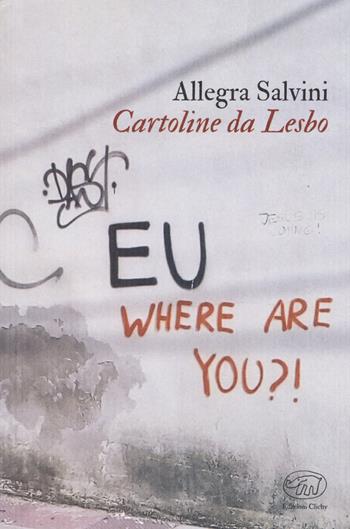 Allegra Salvini
Cartoline da Lesbo
EU
JESUS IS
COMING!
WHERE ARE
YOU?!
Edizioni Clichy